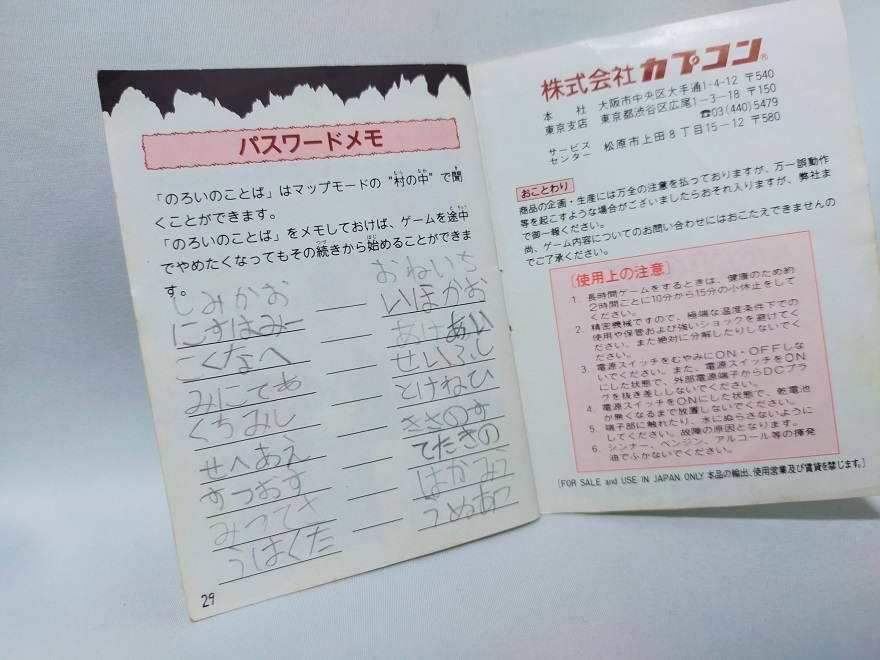 パスワードメモ
「のろいのことば」はマップモードの "村の中" で聞
くことができます。
「のろいのことば」をメモしておけば、ゲームを途中
でやめたくなってもその続きから始めることができま
す。
しみかお
おねいち
にすはみー
いほかお
こくなへ
あけあい
みにてあ
せいふし
くちみし
とけねひ
せへあえ
ささのす
すつおす
てたきの
みつてさ
はかみう
うはくた
つぬあつ
29
株式会社カプコン®
本 社 大阪市中央区大手通1-4-12 〒540
東京支店 東京都渋谷区広尾1-3-18 〒150
☎03(440)5479
サービスセンター 松原市上田8丁目15-12 〒580
おことわり
商品の企画・生産には万全の注意を払っておりますが、万一誤動作
等を起こすような場合がございましたらおそれ入りますが、弊社ま
で御一報ください。
尚、ゲーム内容についてのお問い合わせにはおこたえできませんの
でご了承ください。
〔使用上の注意〕
1. 長時間ゲームをするときは、健康のため約
2時間ごとに10分から15分の小休止をして
ください。
2. 精密機械ですので、極端な温度条件下での
使用や保管および強いショックを避けてく
ださい。また絶対に分解したりしないでく
ださい。
3. 電源スイッチをむやみにON・OFFしな
いでください。また、電源スイッチをON
にした状態で、外部電源端子からDCプラ
グを抜き差ししないでください。
4. 電源スイッチをONにした状態で、乾電池
が無くなるまで放置しないでください。
5. 端子部に触れたり、水にぬらさないように
してください。故障の原因となります。
6. シンナー、ベンジン、アルコール等の揮発
油でふかないでください。
(FOR SALE and USE IN JAPAN ONLY 本品の輸出、使用営業及び賃貸を禁じます。)